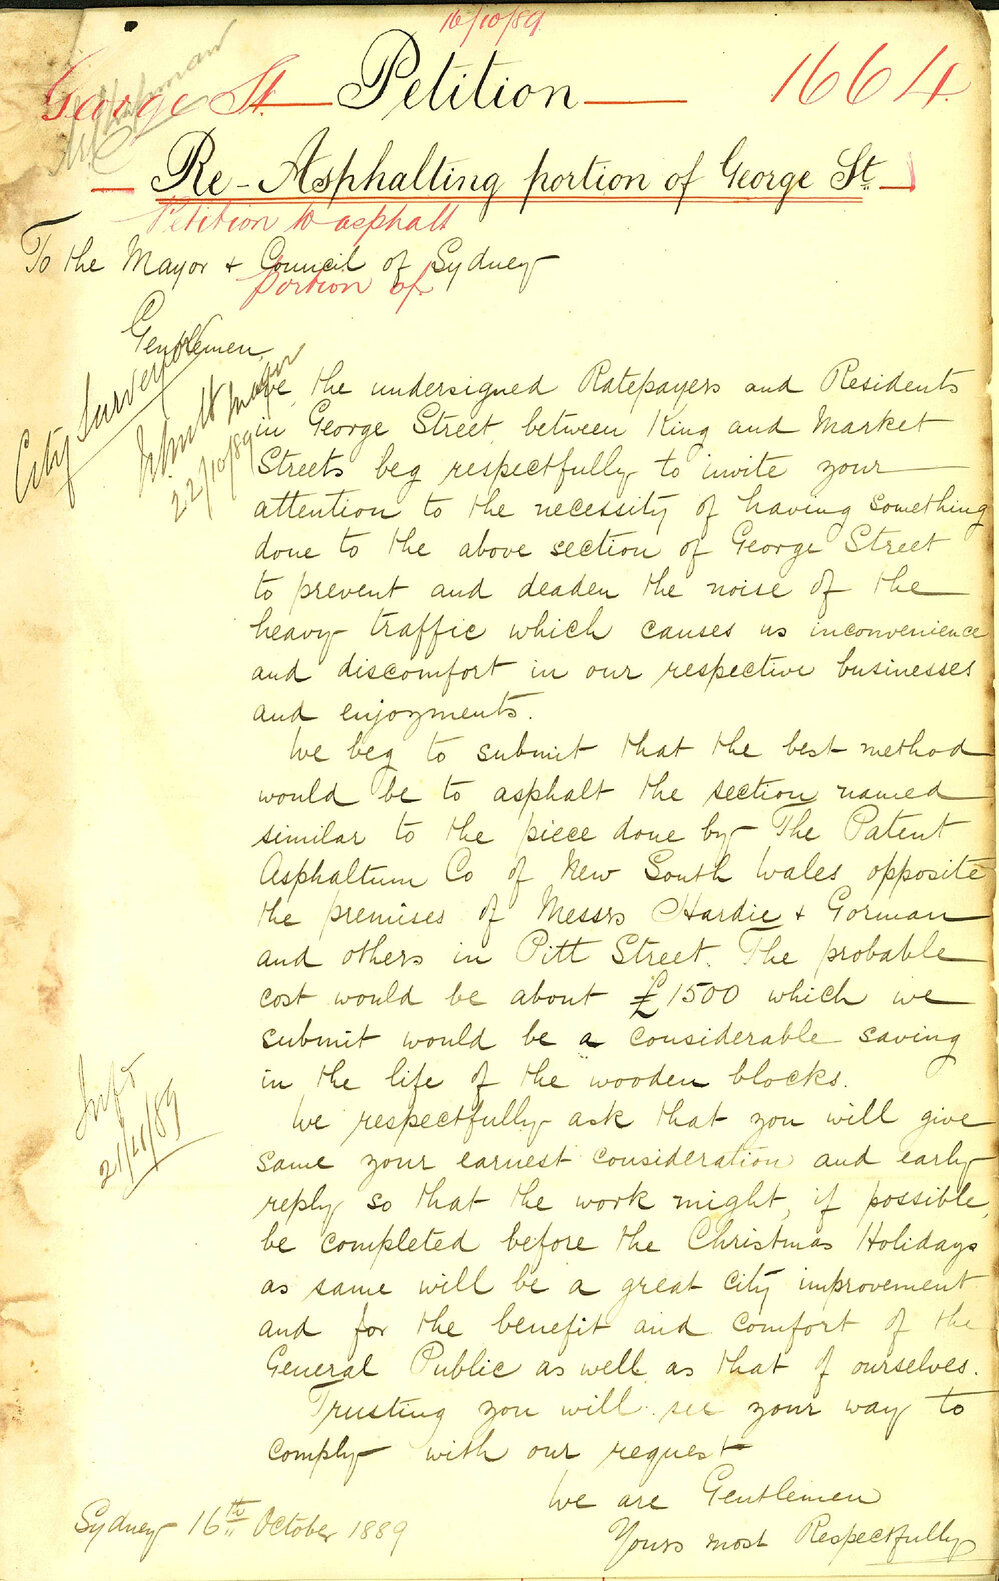 16/10/89
George St. Petition 1664
Re-Asphalting portion of George St.
Petition to asphalt
To the Mayor & Council of Sydney
portion of
Gentlemen,
City Surveyor
22/10/89
We, the undersigned Ratepayers and Residents
in George Street between King and Market
Streets beg respectfully to invite your
attention to the necessity of having something
done to the above section of George Street
to prevent and deaden the noise of the
heavy traffic which causes us inconvenience
and discomfort in our respective businesses
and enjoyments.
We beg to submit that the best method
would be to asphalt the section named
similar to the piece done by The Patent
Asphaltum Co of New South Wales opposite
the premises of Messrs Hardie & Gorman
and others in Pitt Street. The probable
cost would be about £1500 which we
submit would be a considerable saving
in the life of the wooden blocks.
We respectfully ask that you will give
same your earnest consideration and early
reply so that the work might, if possible,
be completed before the Christmas Holidays
as same will be a great city improvement
and for the benefit and comfort of the
General Public as well as that of ourselves.
Trusting you will see your way to
comply with our request
We are Gentlemen
Yours most Respectfully
Sydney 16th October 1889